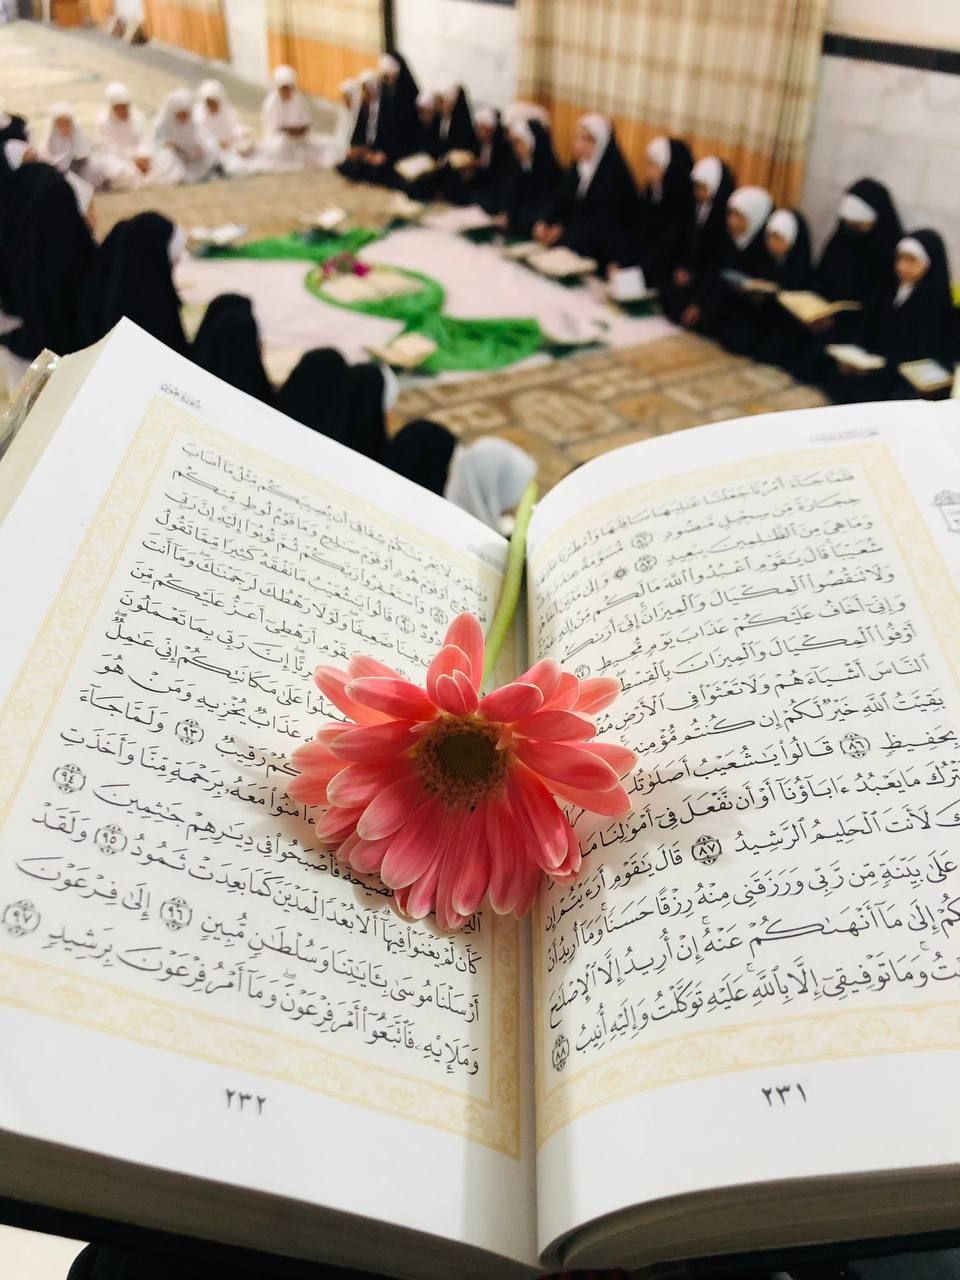 فَلَمَّا جَآءَ أَمْرُنَا جَعَلْنَا عَٰلِيَهَا سَافِلَهَا وَأَمْطَرْنَا عَلَيْهَا
حِجَارَةً مِّن سِجِّيلٍ مَّنضُودٍ ٨٢ مُّسَوَّمَةً عِندَ
وَمَا هِيَ مِنَ ٱلظَّٰلِمِينَ بِبَعِيدٍ ٨٣ ۞ وَإِلَىٰ مَدْيَنَ
شُعَيْبًا قَالَ يَٰقَوْمِ ٱعْبُدُوا۟ ٱللَّهَ مَا لَكُم مِّنْ إِلَٰهٍ
وَلَا تَنقُصُوا۟ ٱلْمِكْيَالَ وَٱلْمِيزَانَ إِنِّيٓ أَرَىٰكُم
وَإِنِّيٓ أَخَافُ عَلَيْكُمْ عَذَابَ يَوْمٍ مُّحِيطٍ
أَوْفُوا۟ ٱلْمِكْيَالَ وَٱلْمِيزَانَ بِٱلْقِسْطِ
ٱلنَّاسَ أَشْيَآءَهُمْ وَلَا تَعْثَوْا۟ فِي ٱلْأَرْضِ
بَقِيَّتُ ٱللَّهِ خَيْرٌ لَّكُمْ إِن كُنتُم مُّؤْمِنِينَ
بِحَفِيظٍ ٨٦ قَالُوا۟ يَٰشُعَيْبُ أَصَلَوٰتُكَ
مَا يَعْبُدُ ءَابَآؤُنَآ أَوْ أَن نَّفْعَلَ فِيٓ أَمْوَٰلِنَا مَا
لَأَنتَ ٱلْحَلِيمُ ٱلرَّشِيدُ ٨٧ قَالَ يَٰقَوْمِ أَرَءَيْتُمْ إِن
عَلَىٰ بَيِّنَةٍ مِّن رَّبِّي وَرَزَقَنِي مِنْهُ رِزْقًا حَسَنًا وَمَآ أُرِيدُ أَنْ
إِلَىٰ مَآ أَنْهَىٰكُمْ عَنْهُ إِنْ أُرِيدُ إِلَّا ٱلْإِصْلَٰحَ
وَمَا تَوْفِيقِيٓ إِلَّا بِٱللَّهِ عَلَيْهِ تَوَكَّلْتُ وَإِلَيْهِ أُنِيبُ ٨٨
٢٣١
وَيَٰقَوْمِ لَا يَجْرِمَنَّكُمْ شِقَاقِيٓ أَن يُصِيبَكُم مِّثْلُ مَآ أَصَابَ
قَوْمَ نُوحٍ أَوْ قَوْمَ هُودٍ أَوْ قَوْمَ صَٰلِحٍ وَمَا قَوْمُ لُوطٍ مِّنكُم
وَٱسْتَغْفِرُوا۟ رَبَّكُمْ ثُمَّ تُوبُوٓا۟ إِلَيْهِ إِنَّ رَبِّي
وَدُودٌ قَالُوا۟ يَٰشُعَيْبُ مَا نَفْقَهُ كَثِيرًا مِّمَّا تَقُولُ
فِينَا ضَعِيفًا وَلَوْلَا رَهْطُكَ لَرَجَمْنَٰكَ وَمَآ أَنتَ
يَٰقَوْمِ أَرَهْطِيٓ أَعَزُّ عَلَيْكُم مِّنَ
إِنَّ رَبِّي بِمَا تَعْمَلُونَ
ٱعْمَلُوا۟ عَلَىٰ مَكَانَتِكُمْ إِنِّي عَٰمِلٌ
عَذَابٌ يُخْزِيهِ وَمَنْ هُوَ
رَقِيبٌ ٩٣ وَلَمَّا جَآءَ
ءَامَنُوا۟ مَعَهُۥ بِرَحْمَةٍ مِّنَّا وَأَخَذَتِ
ٱلصَّيْحَةُ فَأَصْبَحُوا۟ فِي دِيَٰرِهِمْ جَٰثِمِينَ ٩٤
كَأَن لَّمْ يَغْنَوْا۟ فِيهَآ أَلَا بُعْدًا لِّمَدْيَنَ كَمَا بَعِدَتْ ثَمُودُ ٩٥ وَلَقَدْ
أَرْسَلْنَا مُوسَىٰ بِـَٔايَٰتِنَا وَسُلْطَٰنٍ مُّبِينٍ ٩٦ إِلَىٰ فِرْعَوْنَ
وَمَلَإِي۟هِۦ فَٱتَّبَعُوٓا۟ أَمْرَ فِرْعَوْنَ وَمَآ أَمْرُ فِرْعَوْنَ بِرَشِيدٍ ٩٧
٢٣٢